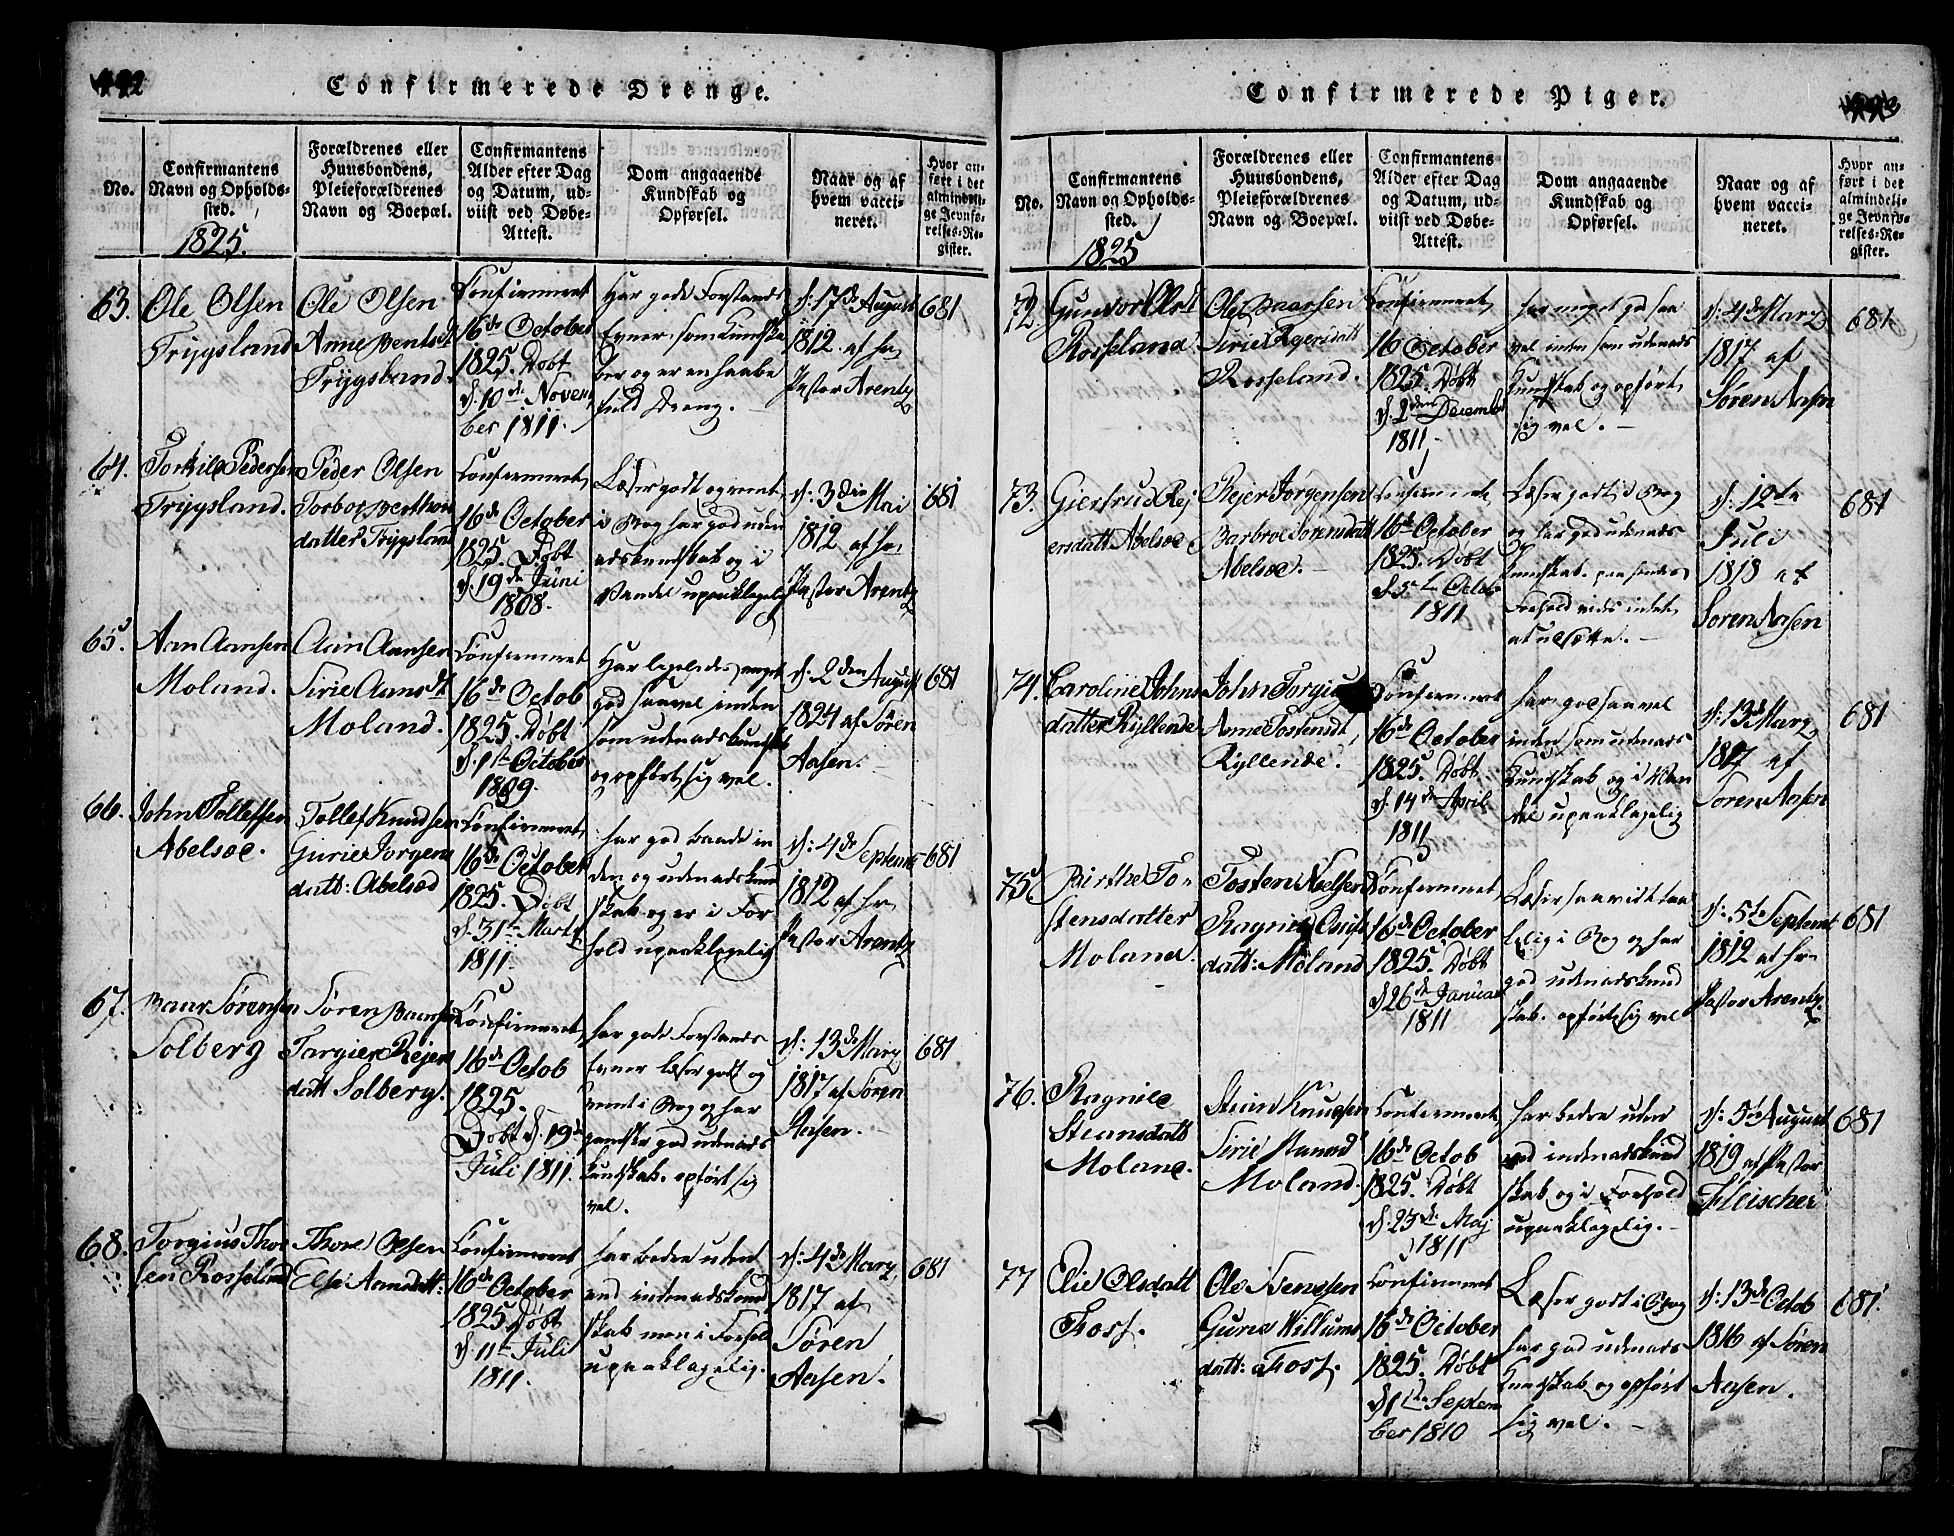 Confirmerede Drenge.
No.
Confirmantens
Navn og Opholds-
sted.
1825.
Forældrenes eller
Huusbondens,
Pleieforældrenes
Navn og Boepæl.
Confirmantens
Alder efter Dag
og Datum, ud-
viist ved Døbe-
Attest.
Dom angaaende
Kundskab og
Opførsel.
Naar og af
hvem vacci-
neret.
Hvor an-
ført i det
almindeli-
ge Jevnfø-
relses-Re-
gister.
63.
Ole Olsen
Trygsland
Ole Olsen
Anne Bentsd
Trygsland.
Confirmeret
16de October
1825. Døbt
d. 10de Novem
ber 1811.
Har gode Forstands
Evner, som Kundska
ber og er en haabe
fuld Dreng.
d: 17de August
1812 af hr
Pastor Arentz
681
64.
Torkild Pedersen
Trygsland.
Peder Olsen
Torbor Berthou
datter Trygsland
Confirmeret
16de October
1825. Døbt
d. 19de Juni
1808.
Læser godt og reent
i Bog har god uden
adskundskab og i
Vandel upaaklagelig
d. 3die Mai
1812 af hr
Pastor Arentz
681
65.
Aan Aansen
Moland.
Aan Aansen
Sirie Aansdt
Moland.
Confirmeret
16de Octob
1825. Døbt
d. 1ste October
1809.
Har ligeledes meget
god saavel inden
som udenadskundskab
og opført sig vel.
d. 2den August
1824 af Søren
Aasen.
681
66.
John Tollefsen
Abelsöe.
Tollef Knudsen
Gurie Jorgens
datt: Abelsöd
Confirmeret
16de October
1825. Døbt
d. 31te Martz
1811.
har god baade in
den og udenadskund
skab og er i For
hold upaaklagelig
d: 4de Septemb
1812 af hr
Pastor Arentz
681
67.
Baar Sørensen
Solberg
Søren Baarsen
Targier Rejers
datt Solberg.
Confirmeret
16de Octob
1825.
Døbt d. 19de
Juli 1811.
har gode Forstands
Evner læser godt og
reent i Bog og har
ganske god udenads
kundskab. opført sig
vel.
d: 13de Martz
1817 af Søren
Aasen.
681
68.
Torgius Thor
sen Rosseland
Thore Olsen
Else Aansdatt:
Confirmeret
16de October
1825 Døbt
d. 11te Juli
1811.
har bedre uden
end indenadskund
skab men i Forhold
upaaklagelig.
d: 4de Martz
1817 af
Søren
Aasen.
681
Confirmerede Piger.
No.
Confirmantens
Navn og Opholds-
sted.
1825
Forældrenes eller
Huusbondens,
Pleieforældrenes
Navn og Boepæl.
Confirmantens
Alder efter Dag
og Datum, ud-
viist ved Døbe-
Attest.
Dom angaaende
Kundskab og
Opførsel.
Naar og af
hvem vacci-
neret.
Hvor an-
ført i det
almindeli-
ge Jevnfø-
relses-Re-
gister.
72.
Gunvor Olsdt
Rosseland
Ole Baarsen
Sirie Rejersdatt
Rosseland.
Confirmeret
16 October
1825. Døbt
d. December
1811.
har meget god saa
vel inden som udenads
Kundskab og opført
sig vel.
d: 4de Martz
1817 af
Søren Aasen
681
73.
Giertrud Rej
ersdatt Abelsöe
Rejer Jørgensen
Barbroe Sørensdatt
Abelsöe.
Confirmeret
16de October
1825. Døbt
d 5te Octob
1811
Læser godt i Bog
og har god udenads
Kundskab. paa hendes
Forhold vides intet
at udsætte.
d: 12te
Juli
1818 af
Soren Aasen
681
74.
Caroline Johns
datter Kyllende
John Torgius
Anne Tostensdt,
Kyllende.
Confirmeret
16de October
1825. Døbt
d. 14de April
1811
har god saavel
inden som udenads
Kundskab og i Van
del upaaklagelig
d: 13de Martz
1817 af
Soren Aasen
681
75.
Birthe To-
stensdatter
Moland.
Tosten Neelsen
Ragnild
datt: Moland
Confirmeret
16de October
1825. Døbt
d 26de Januar
1811
Læser saavidt taa
lelig i Bog og har
god udenadskund
skab. opført sig vel
d: 5te Septemb
1812 af hr
Pastor Arentz.
681
76.
Ragnild
Steansdatt
Moland.
Stean Knudsen
Sirie
Moland.
Confirmeret
16de Octob
1825. Døbt
d. 23de Maj
1811
har bedre uden
end indenadskund
skab og i Forhold
upaaklagelig.
d: 5te August
1819 af Pastor
Fleischer
681
77
Elie Olsdatt
Foss.
Ole Svendsen
Gurie Willums
datt: Foss.
Confirmeret
16de October
1825. Døbt
d 1ste Septem
ber 1810
Læser godt i Bog
har god udenads
Kundskab og opført
sig vel.
d: 13de Octob
1816 af Søren
Aasen.
681.